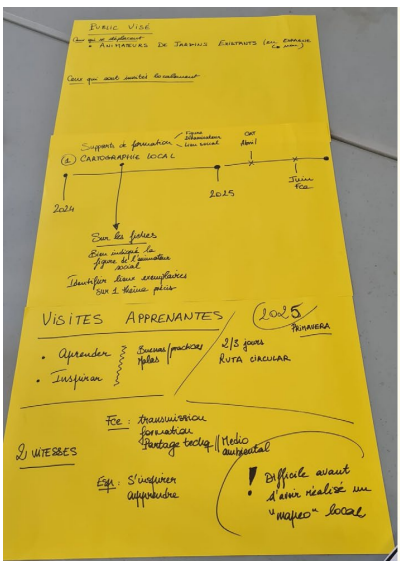 PUBLIC VISÉ
Ceux qui se déplacent
• ANIMATEURS DE JARDINS EXISTANTS (en ESPAGNE
Ceux qui sont invités localement
Supports de formation
Figure
Lieu social
① CARTOGRAPHIE LOCAL
OCT
Abril
2024
2025
Juin
Fce
Sur les fiches
Bien indiqué la
figure de l'animateur
social
Identifier lieux exemplaires
sur 1 thème précis
VISITES APPRENANTES
2025
PRIMAVERA
• Aprender
• Inspirar
Buenas/practicas
Malas
2/3 jours
RUTA CIRCULAR
2 VITESSES
Fce : transmission
formation
Partage techq // Medio
ambiental
Esp : S'inspirer
apprendre
! Difficile avant
d'avoir réalisé un
"mapeo" local